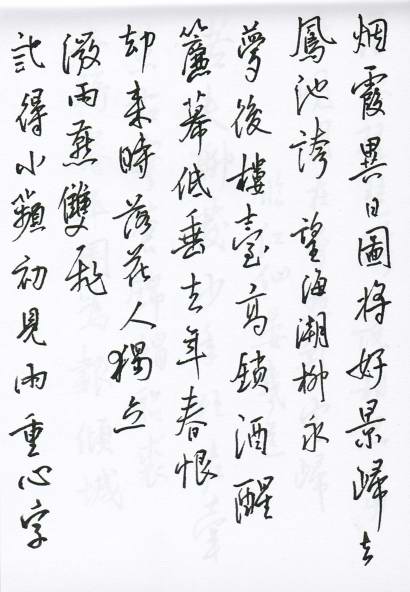 烟霞異日圖将好景歸去
鳳池誇 望海潮柳永
夢後樓臺高鎖酒醒
簾幕低垂去年春恨
却来時落花人獨立
微雨燕雙飛
記得小蘋初見兩重心字